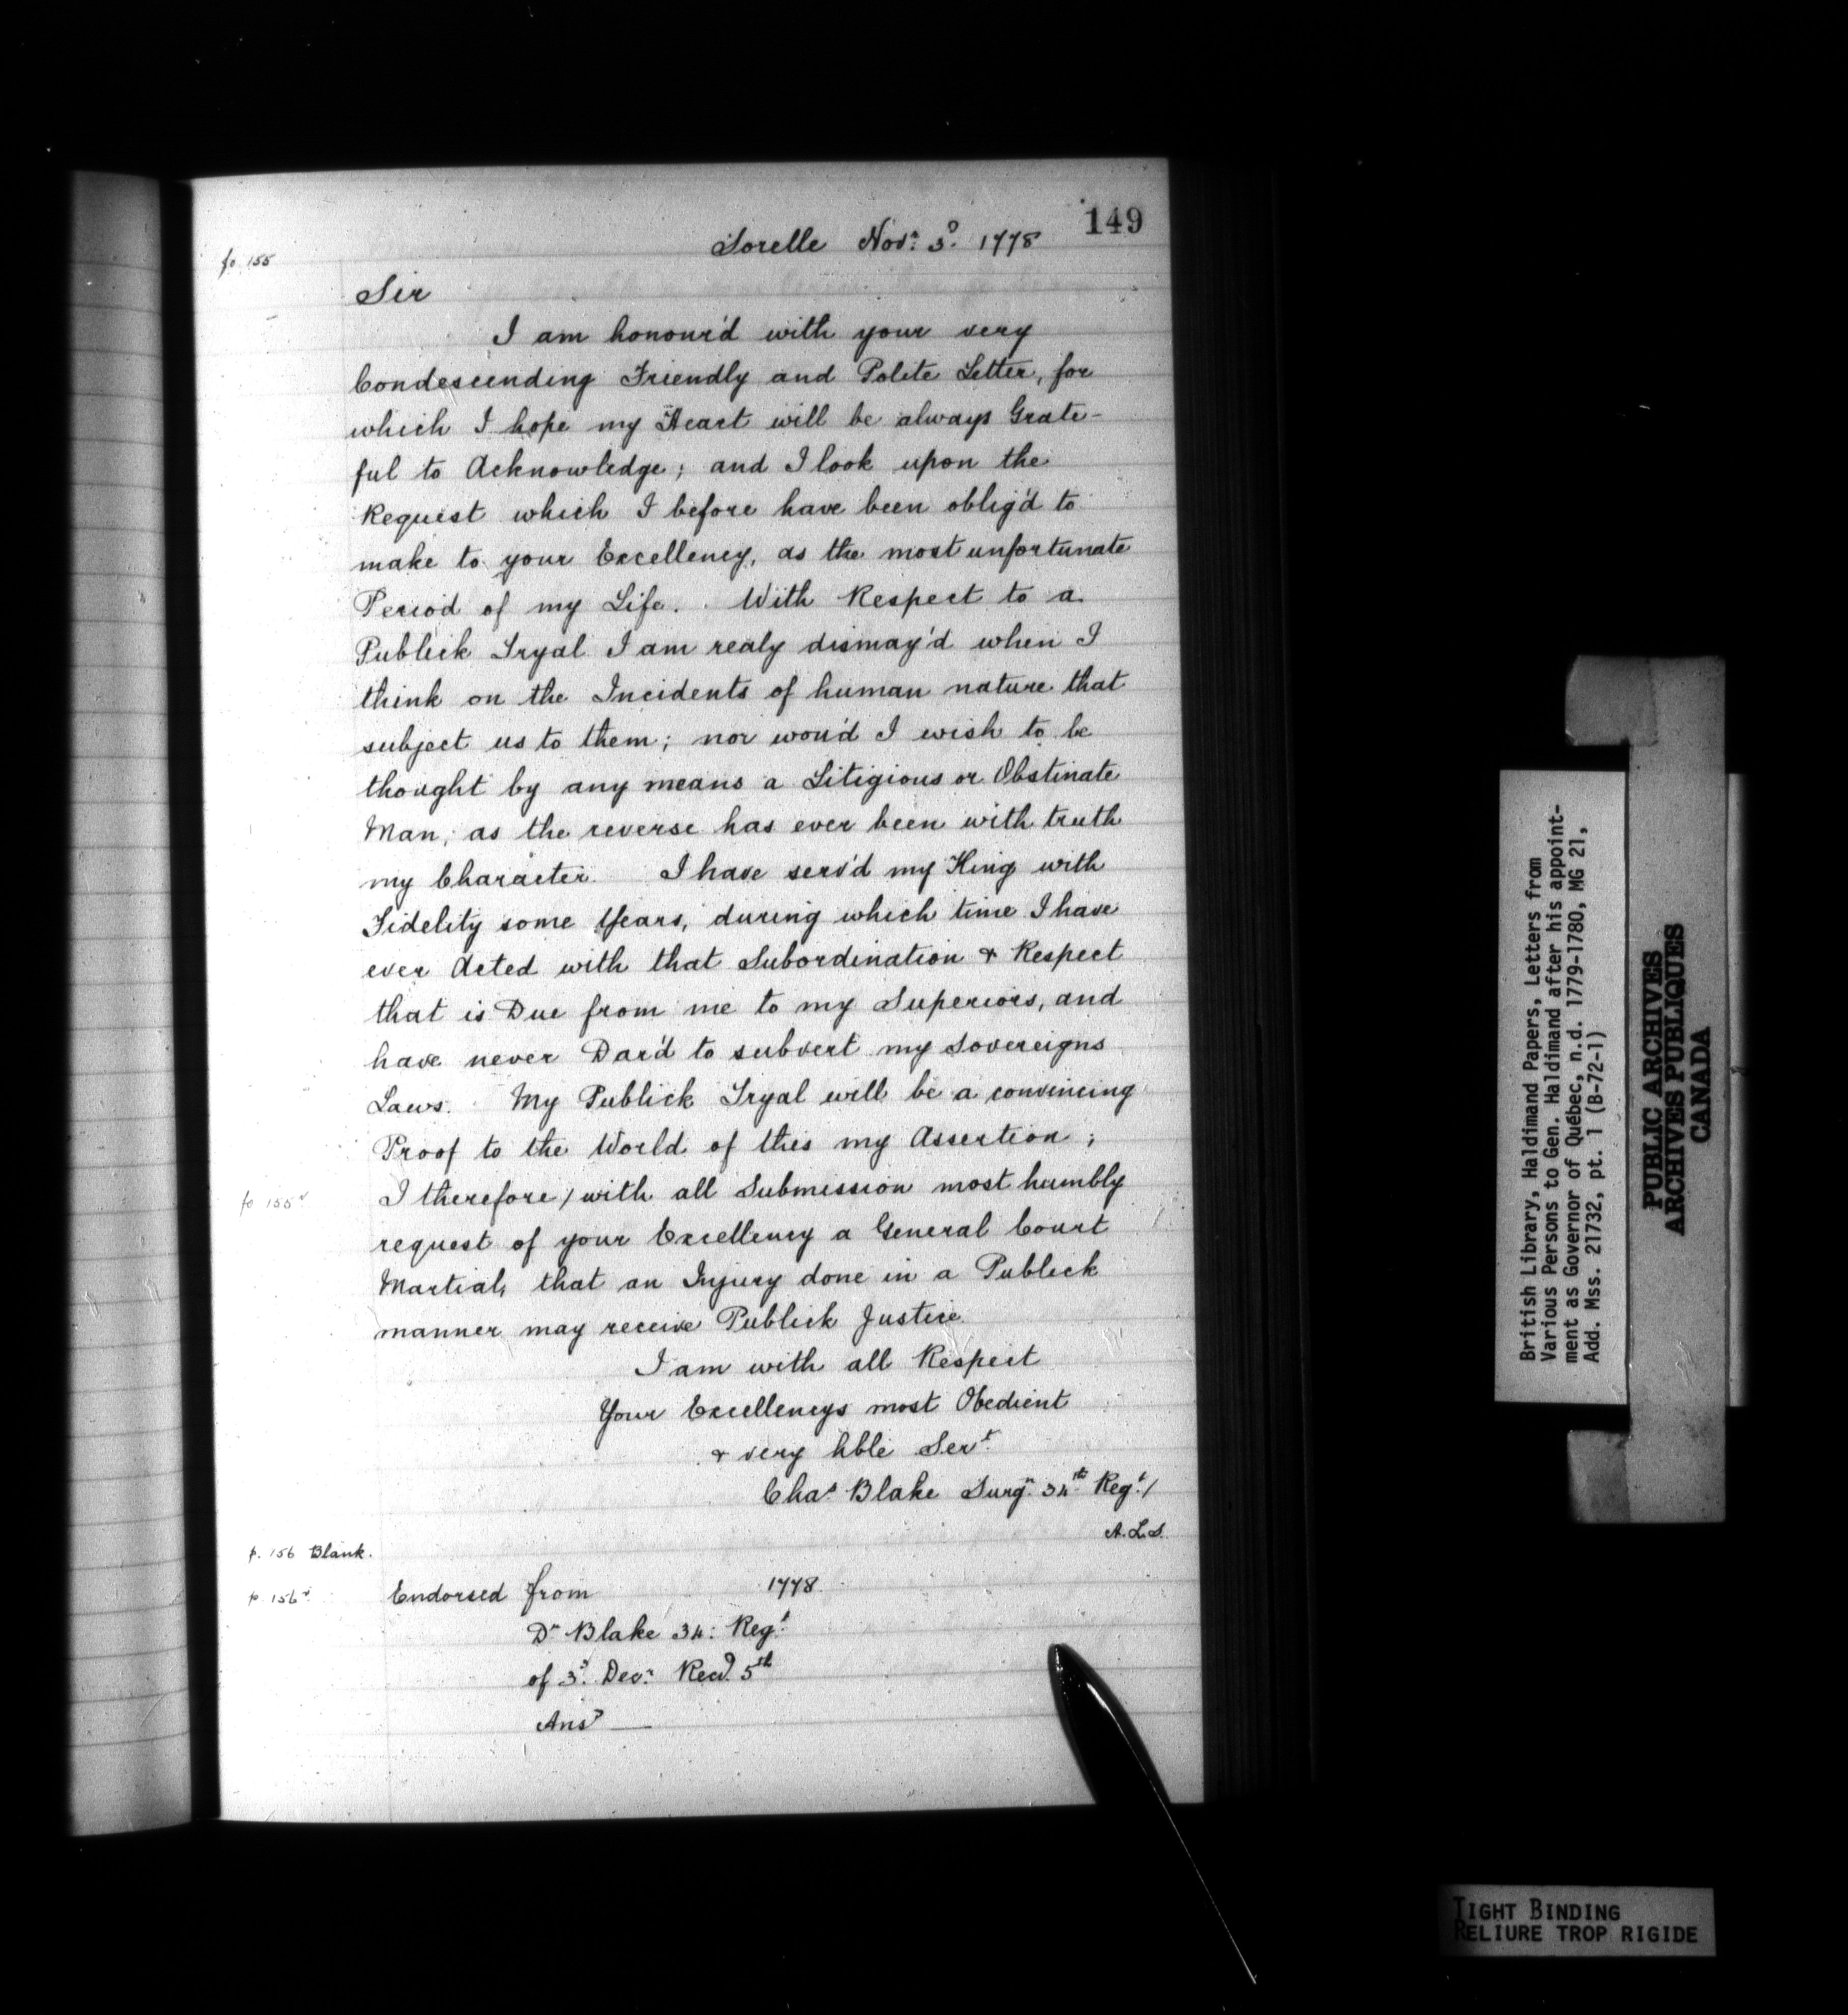 149
Sorelle Novr. 3d. 1778
fo. 155
Sir
I am honour'd with your very
Condescending Friendly and Polite Letter, for
which I hope my Heart will be always Grate-
ful to Acknowledge; and I look upon the
Request which I before have been oblig'd to
make to your Excellency, as the most unfortunate
Period of my Life. With Respect to a
Publick Tryal I am realy dismay'd when I
think on the Incidents of human nature that
subject us to them; nor wou'd I wish to be
thought by any means a Litigious or Obstinate
Man, as the reverse has ever been with truth
my Character. I have serv'd my King with
Fidelity some Years, during which time I have
ever Acted with that Subordination & Respect
that is Due from me to my Superiors, and
have never Dar'd to subvert my Sovereigns
Laws. My Publick Tryal will be a convincing
Proof to the World of this my Assertion;
fo 155v
I therefore / with all Submission most humbly
request of your Excellency a General Court
Martial, that an Injury done in a Publick
manner may receive Publick Justice.
I am with all Respect
Your Excellencys most Obedient
& very hble Servt.
Chas. Blake Surgn. 34th Regt./
A.L.S.
p. 156 Blank.
p. 156v.
Endorsed from 1778
Dr Blake 34: Regt.
of 3d. Decr. Recd. 5th
Ansd —
British Library, Haldimand Papers, Letters from
Various Persons to Gen. Haldimand after his appoint-
ment as Governor of Québec, n.d. 1779-1780, MG 21,
Add. Mss. 21732, pt. 1 (B-72-1)
PUBLIC ARCHIVES
ARCHIVES PUBLIQUES
CANADA
TIGHT BINDING
RELIURE TROP RIGIDE